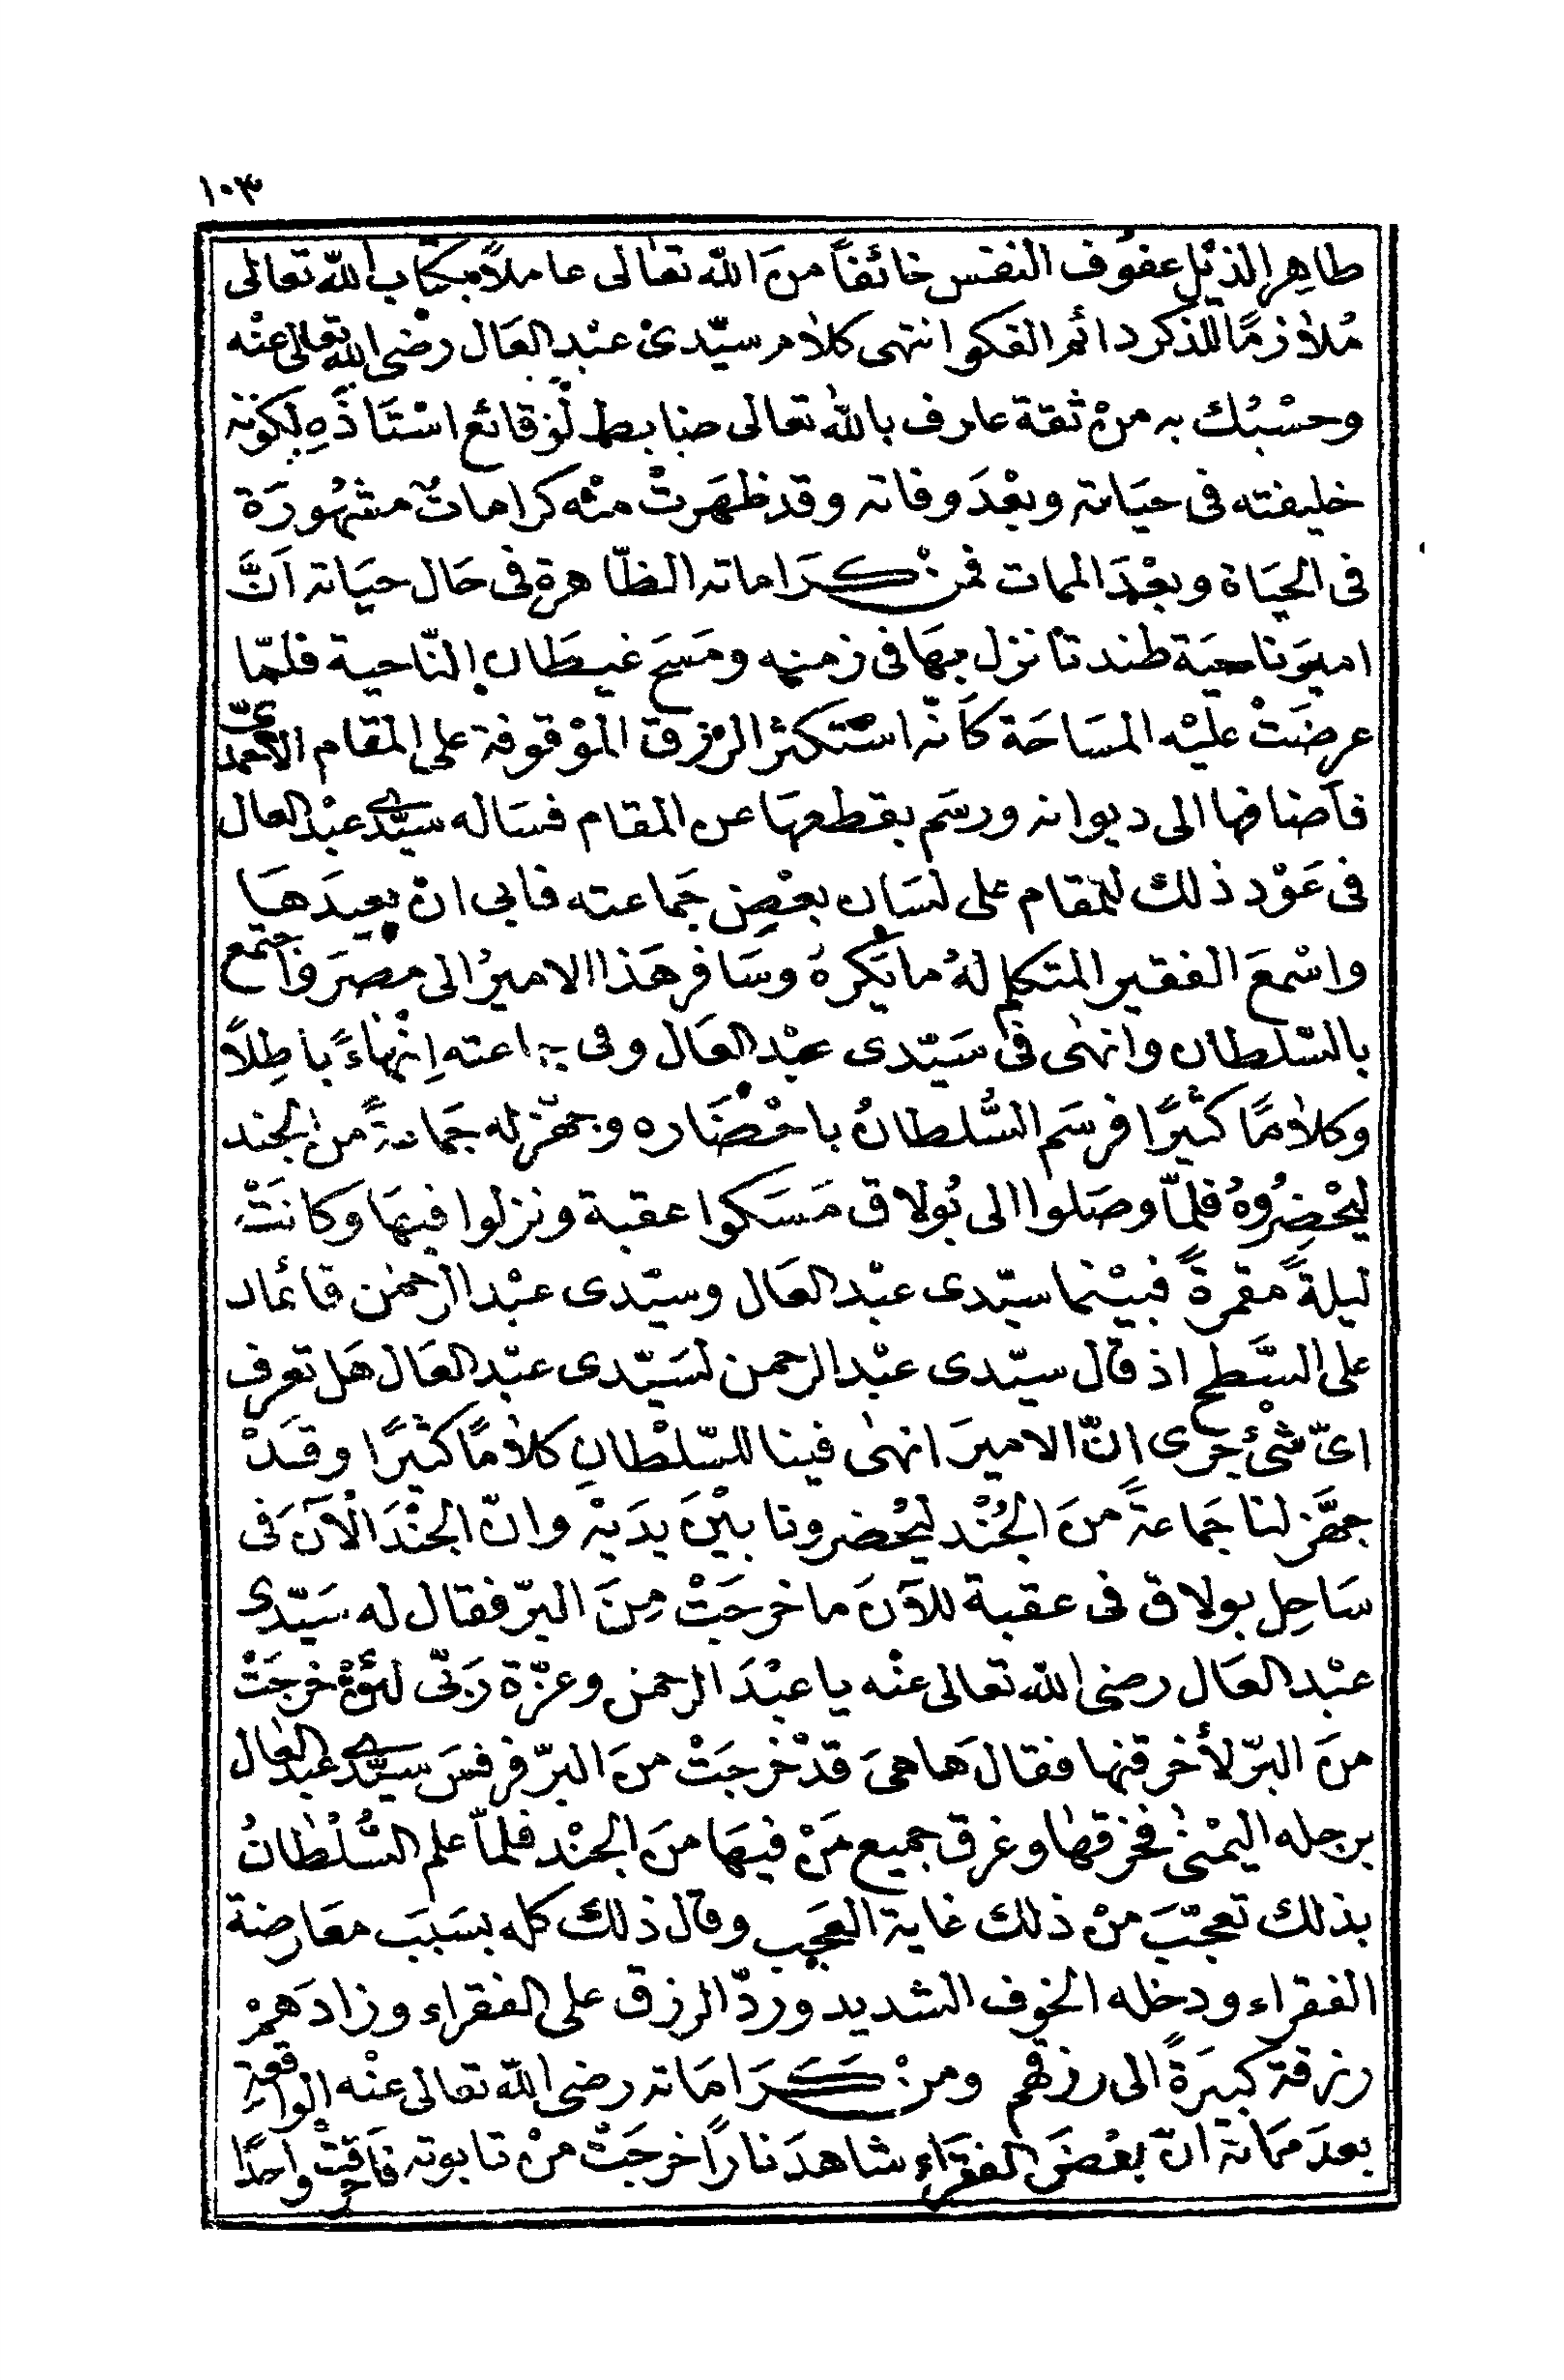 ١٠٣
طاهِرِ الذيْلِ عفوف النفس خائفاً منَ الله تعالى عاملاً بكتاب الله تعالى
مُلازمًا للذكر دائم الفكر انتهى كلام سيّدى عبْد العَال رضى الله تعالى عنْه
وحسْبُك به منْ ثقة عارف بالله تعالى ضابط لوَقائع اسْتَاذَهِ لكونه
خليفته فى حيَاته وبعْدَ وفاته وقد ظهَرتْ منْه كرامات مشهُورَة
فى الحيَاة وبعْدَ الممات فمن كرَاماته الظّاهرة فى حَال حيَاته اَنَّ
اميرَ ناحيَة طندتا نزل بهَا فى زمنه ومَسَحَ غيطَان النّاحية فلمّا
عرضَتْ عليْه المسَاحَة كَأنّه اسْتكثر الرزق الموْقوفة على المقام الأحمدىّ
فأضافها الى ديوانه ورسَم بقطعهَا عن المقام فسَاله سيّدى عبْد العال
فى عَوْد ذلك للمقام على لسَان بعْض جَماعته فابى انْ يعيدَهَا
واسْمعَ الفقير المتكلم لهُ ما يَكرهُ وسَافر هَذا الاميرُ الى مصرَ واَجتمع
بالسّلطان وانهٰى فى سَيّدى عبْد العَال وفى جماعته اِنْهاءً باطِلاً
وكلامًا كثيرًا فرسَم السُّلطانُ باحْضَاره وجهّز له جَماعةً من الجند
ليحْضِرُوهُ فلمّا وصَلوا الى بُولاق مَسَكوا عقبة ونزلوا فيهَا وكانَتْ
ليلةً مقمرةً فبيْنما سيّدى عبْد العَال وسيّدى عبْد الرحمٰن قائمان
على السَّطح اذ قال سيّدى عبْد الرحمن لسَيّدى عبْد العَال هَل تعرف
اىّ شئ جرَى انّ الاميرَ انهٰى فينا للسّلْطانِ كلامًا كثيرًا وقَدْ
جهَّز لنا جَماعةً منَ الجُنْد ليحْضرونا بيْنَ يدَيْه وانّ الجنْدَ الْآنَ فى
سَاحِل بولاق فى عقبة للآنَ ما خرجَتْ مِنَ البرّ فقال له سَيّدى
عبْد العَال رضى الله تعالى عنْه يا عبْدَ الرحمن وعزّة رَبّى لئنْ خرجَتْ
منَ البرّ لأخرقنها فقالَ هَا هىَ قدْ خرجَتْ منَ البرّ فرفسَ سيّدى عبد العال
برجله اليمْنىٰ فخرقهٰا وغرق جميع مَنْ فيهَا منَ الجنْد فلمّا علم السُّلْطانُ
بذلك تعجّبَ منْ ذلك غاية العجَب وقال ذلك كله بسَبَب معَارضة
الفقراء ودخله الخوف الشديد وردّ الرزق على الفقراء وزادَهمْ
رزقة كبيرَةً الى رزقهم ومنْ كرَامَاته رضى الله تعالى عنْه الواقعة
بعدَ ممَاته انّ بعْضَ الفقرَاء شاهدَ نارًا خرجَتْ منْ تابوته فاَحرقتْ واحدًا